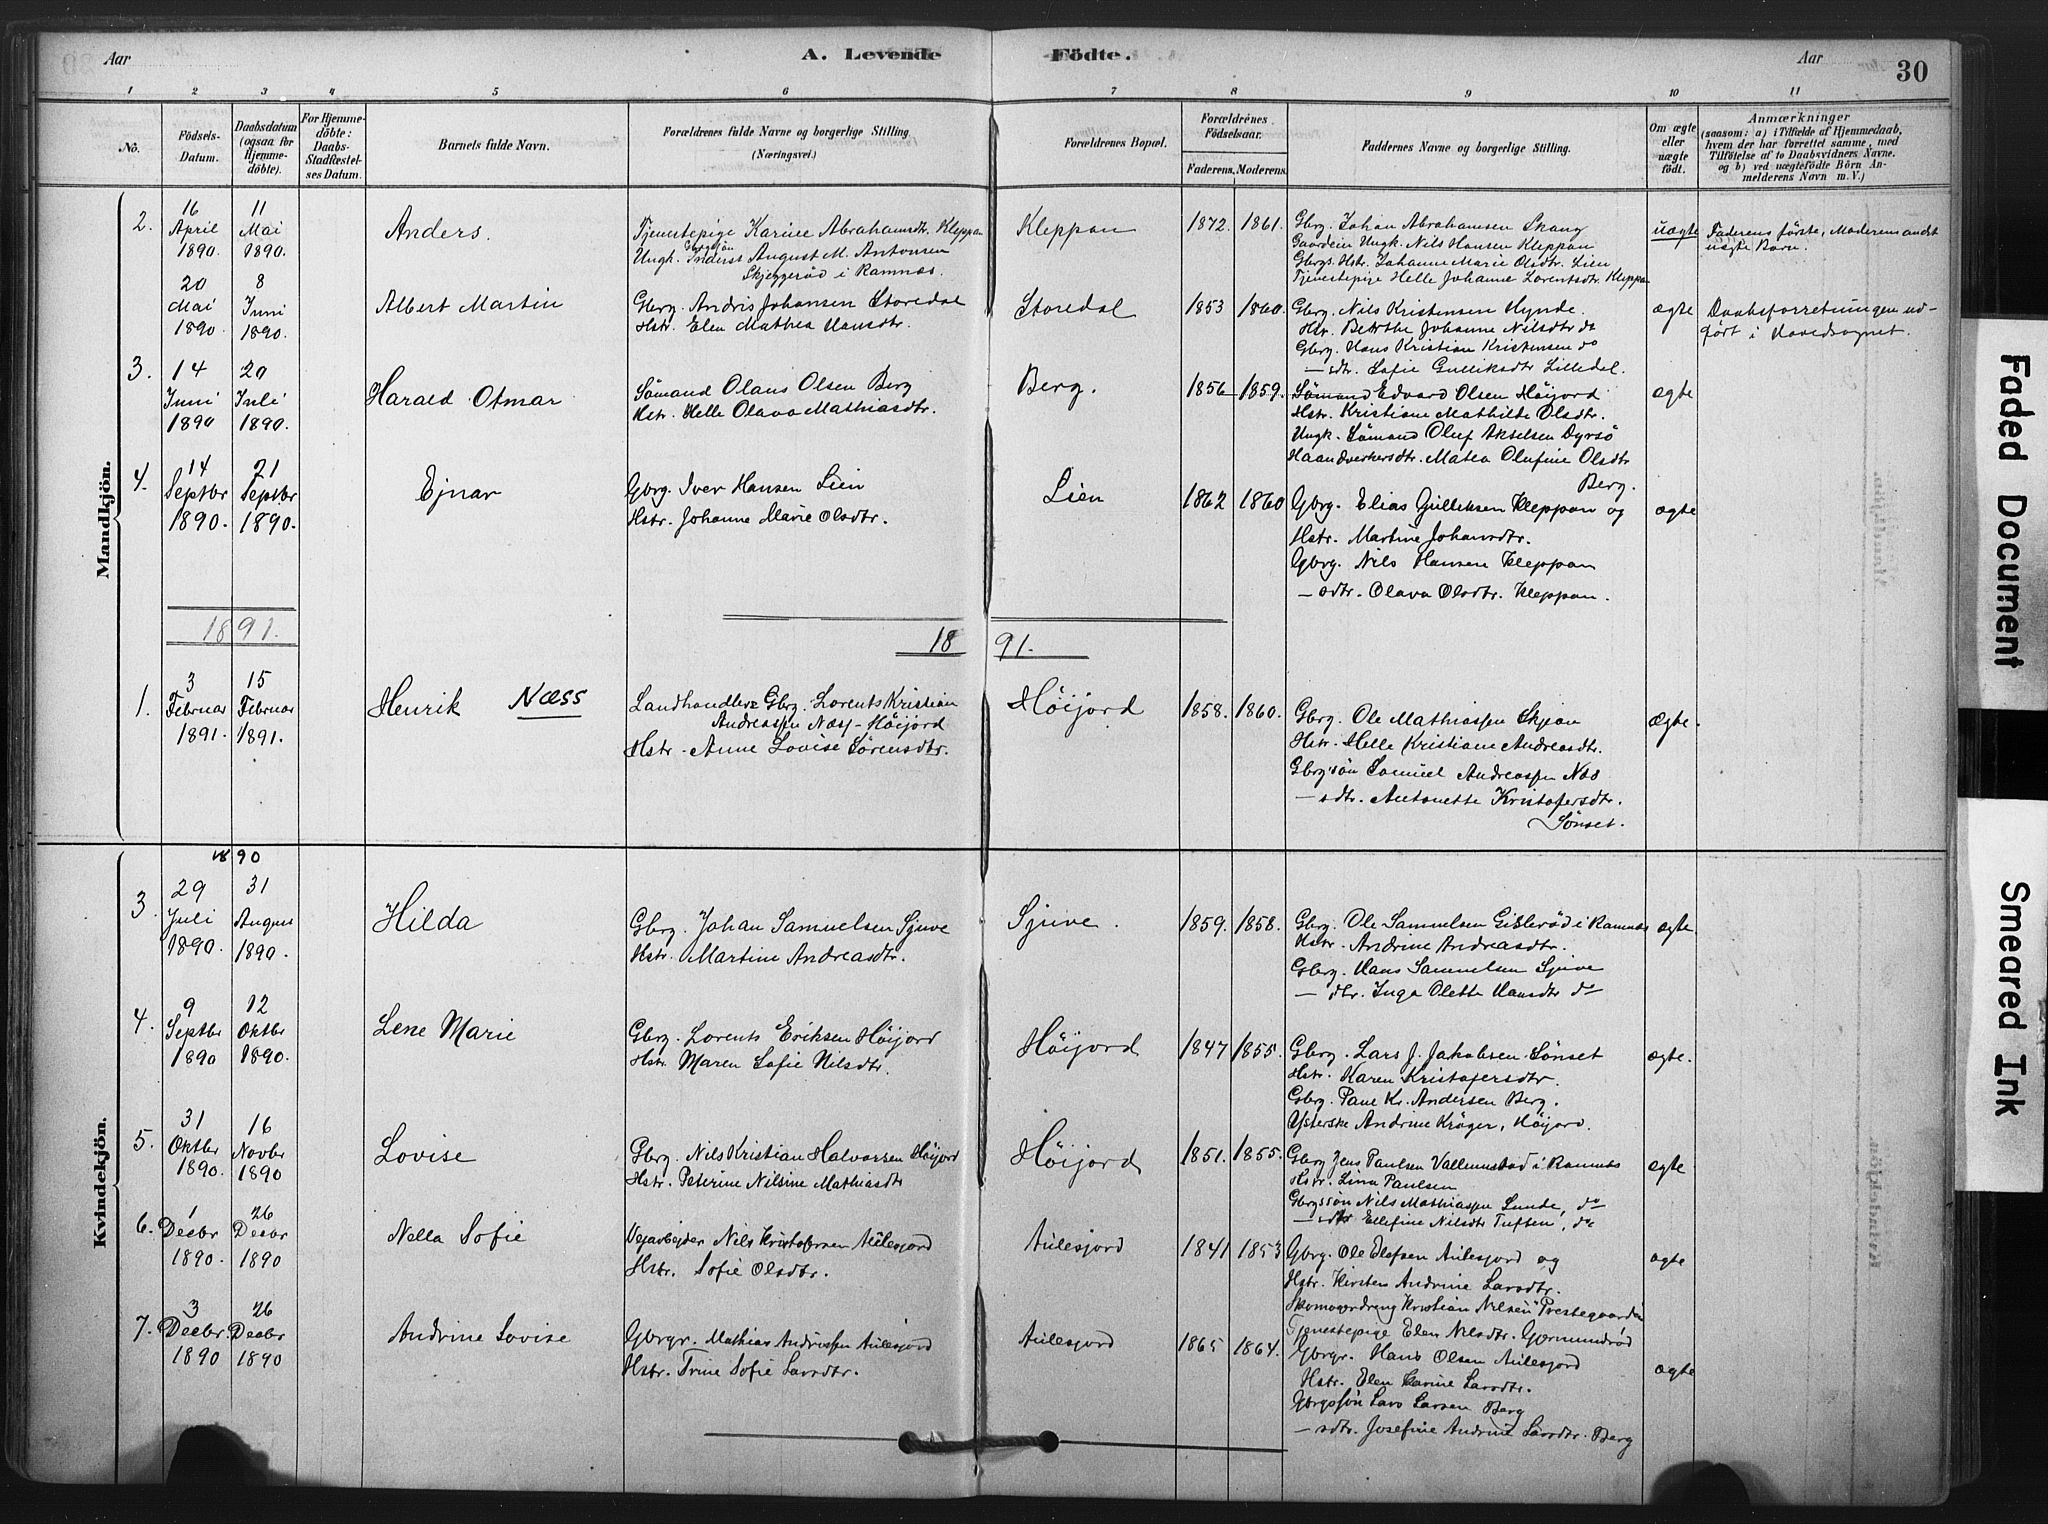 Aar A. Levende Födte. Aar 30
1 2 3 4 5 6 7 8 9 10 11
No.
Födsels-
Datum.
Daabsdatum
(ogsaa for
Hjemme-
döbte).
For Hjemme-
döbte:
Daabs-
Stadfæstel-
ses Datum.
Barnets fulde Navn.
Forældrenes fulde Navne og borgerlige Stilling
(Næringsvei.)
Forældrenes Bopæl.
Forældrenes
Födselsaar.
Faderens. Moderens.
Faddernes Navne og borgerlige Stilling.
Om ægte
eller
uægte
födt.
Anmærkninger
(saasom: a) i Tilfælde af Hjemmedaab,
hvem der har forrettet samme, med
Tilföielse af to Daabsvidners Navne.
og b) ved uægtefödte Börn An-
melderens Navn m. V.)
Mandkjön.
2.
16
April
1890.
11
Mai
1890.
Anders.
Tjenestepige Karine Abrahamsdtr. Kleppan
Ungk. August M. Antonsen
Skjeggeröd i Ramnæs.
Kleppan
1872. 1861.
Gbrg. Johan Abrahamsen Skaug
Ungk. Nils Hansen Kleppan
Gbrgs. Hstr. Johanne Marie Olsdtr. Lien
Tjenestepige Helle Johanne Lorentsdtr. Kleppan
uægte
Faderens förste, Moderens andet
uægte Barn.
20
Mai
1890.
8
Juni
1890.
Albert Martin
Gbrg. Andris Johansen Storedal
Hstr. Elen Mathea Hansdtr.
Storedal
1853 1860.
Gbrg. Nils Kristensen Hynde.
Hstr. Berthe Johanne Nilsdtr do
Gbrg. Hans Kristian Kristensen do
— sdtr. Sofie Gulliksdtr Lilledal.
ægte
Daabsforretningen ud-
gjört i Hovedsognet.
3.
14
Juni
1890
20
Juli
1890.
Harald Otmar
Sömand Olaus Olsen Berg
Hstr. Helle Olava Mathiasdtr.
Berg.
1856 1859.
Sömand Edvard Olsen Höijord
Hstr. Kristiane Mathilde Olsdtr.
Ungk. Sömand Oluf Akselsen Dyrsö
Haandverkersdtr. Matea Olufine Olsdtr
Berg.
ægte
4.
14
Septbr
1890.
21
Septbr
1890.
Ejnar
Gbrg. Iver Hansen Lien
Hstr. Johanne Marie Olsdtr.
Lien
1862 1860
Gbrg. Elias Gulliksen Kleppan og
Hstr. Martine Johansdtr.
Gbrg. Nils Hansen Kleppan
— sdtr. Olava Olsdtr. Kleppan.
ægte
1891.
18 91.
1.
3
Februar
1891.
15
Februar
1891.
Henrik Næss
Landhandler Gbrg. Lorents Kristian
Andreassen Næss - Höijord
Hstr. Anne Lovise Sörensdtr.
Höijord
1858. 1860.
Gbrg. Ole Mathiassen Skjeau
Hstr. Helle Kristiane Andreasdtr.
Gbrg'sön Samuel Andreassen Næs
— sdtr. Antonette Kristofersdtr.
Sönset.
Ægte.
Kvindekjön.
1890
3.
29
Juli
1890.
31
August
1890.
Hilda
Gbrg. Johan Samuelsen Sjuve
Hstr. Martine Andreasdtr.
Sjuve.
1859. 1858.
Gbrg. Ole Samuelsen Gisleröd i Ramnæs
Hstr. Andrine Andreasdtr.
Gbrg. Hans Samuelsen Sjuve
— dtr. Inga Olette Hansdtr do
ægte
4.
9
Septbr
1890
12
Oktbr
1890.
Lene Marie
Gbrg. Lorents Eriksen Höijord
Hstr. Maren Sofie Nilsdtr.
Höijord
1847 1855.
Gbrg. Lars J. Jakobsen Sönset
Hstr. Karen Kristofersdtr.
Gbrg. Paul Kr. Andersen Berg.
Ysterske Andrine Kröger, Höijord.
ægte.
5.
31
Oktbr
1890.
16
Novbr
1890
Lovise
Gbrg. Nils Kristian Halvorsen Höijord
Hstr. Peterine Nilsine Mathiasdtr
Höijord
1851. 1855.
Gbrg Jens Paulsen Vallumstad i Ramnæs
Hstr. Lina Paulsen
Gbrgssön Nils Mathiassen Lunde, do
— sdtr Ellefine Nilsdtr Tuften, do
ægte
6.
1
Decbr
1890.
26
Decbr
1890
Nella Sofie
Vejarbejder Nils Kristofersen Aulesjord
Hstr. Sofie Olsdtr.
Aulesjord
1841 1853
Gbrg. Ole Elefsen Aulesjord og
Hstr. Kirsten Andrine Larsdtr.
Skomagerdreng Kristian Nilsen Prestegaarden
Tjenestepige Elen Nilsdtr. Gjermundröd
ægte
7.
3
Decbr.
1890
26
Decbr
1890
Andrine Lovise
Gbrgr. Mathias Andreassen Aulesjord
Hstr. Trine Sofie Larsdtr.
Aulesjord
1865 1864.
Gbrgr. Hans Olsen Aulesjord
Hstr. Elen Karine Larsdtr.
Gbrgssön Lars Larsen Berg
— sdtr. Josefine Andrine Larsdtr. Berg
ægte
Faded Document
Smeared Ink